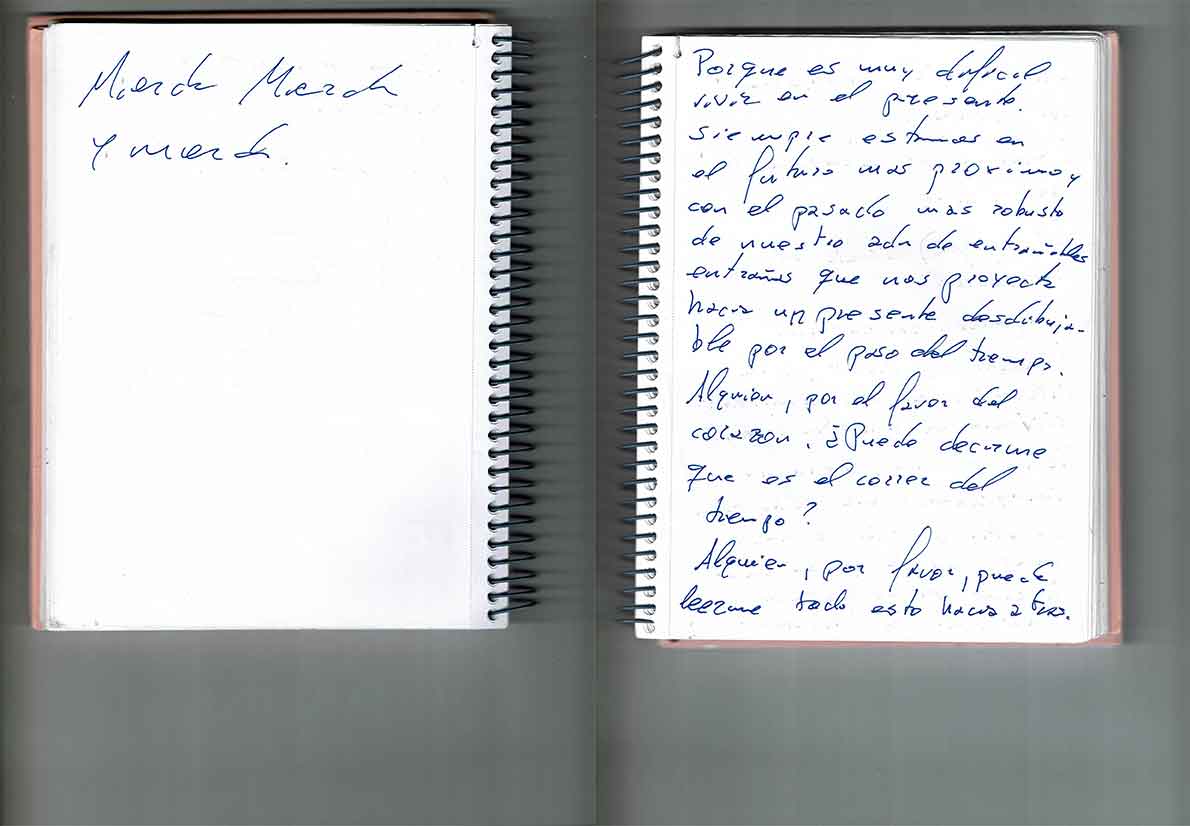 Mierda Mierda
y mierda.
Porque es muy dificil
vivir en el presente.
Siempre estamos en
el futuro mas proximo y
con el pasado mas robusto
de nuestro de entrañables
entrañas que nos proyecta
hacia un presente desdibuja-
ble por el paso del tiempo.
Alguien, por el favor del
corazon. ¿Puede decirme
que es el correr del
tiempo?
Alguien, por favor, puede
leerme todo esto hacia atras.